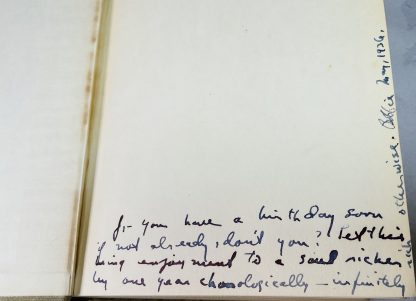 you have a birthday soon
if not already, don't you? Let this
bring enjoyment to a soul richer
by one year chonologically — infinitely
otherwise. May, 1936.